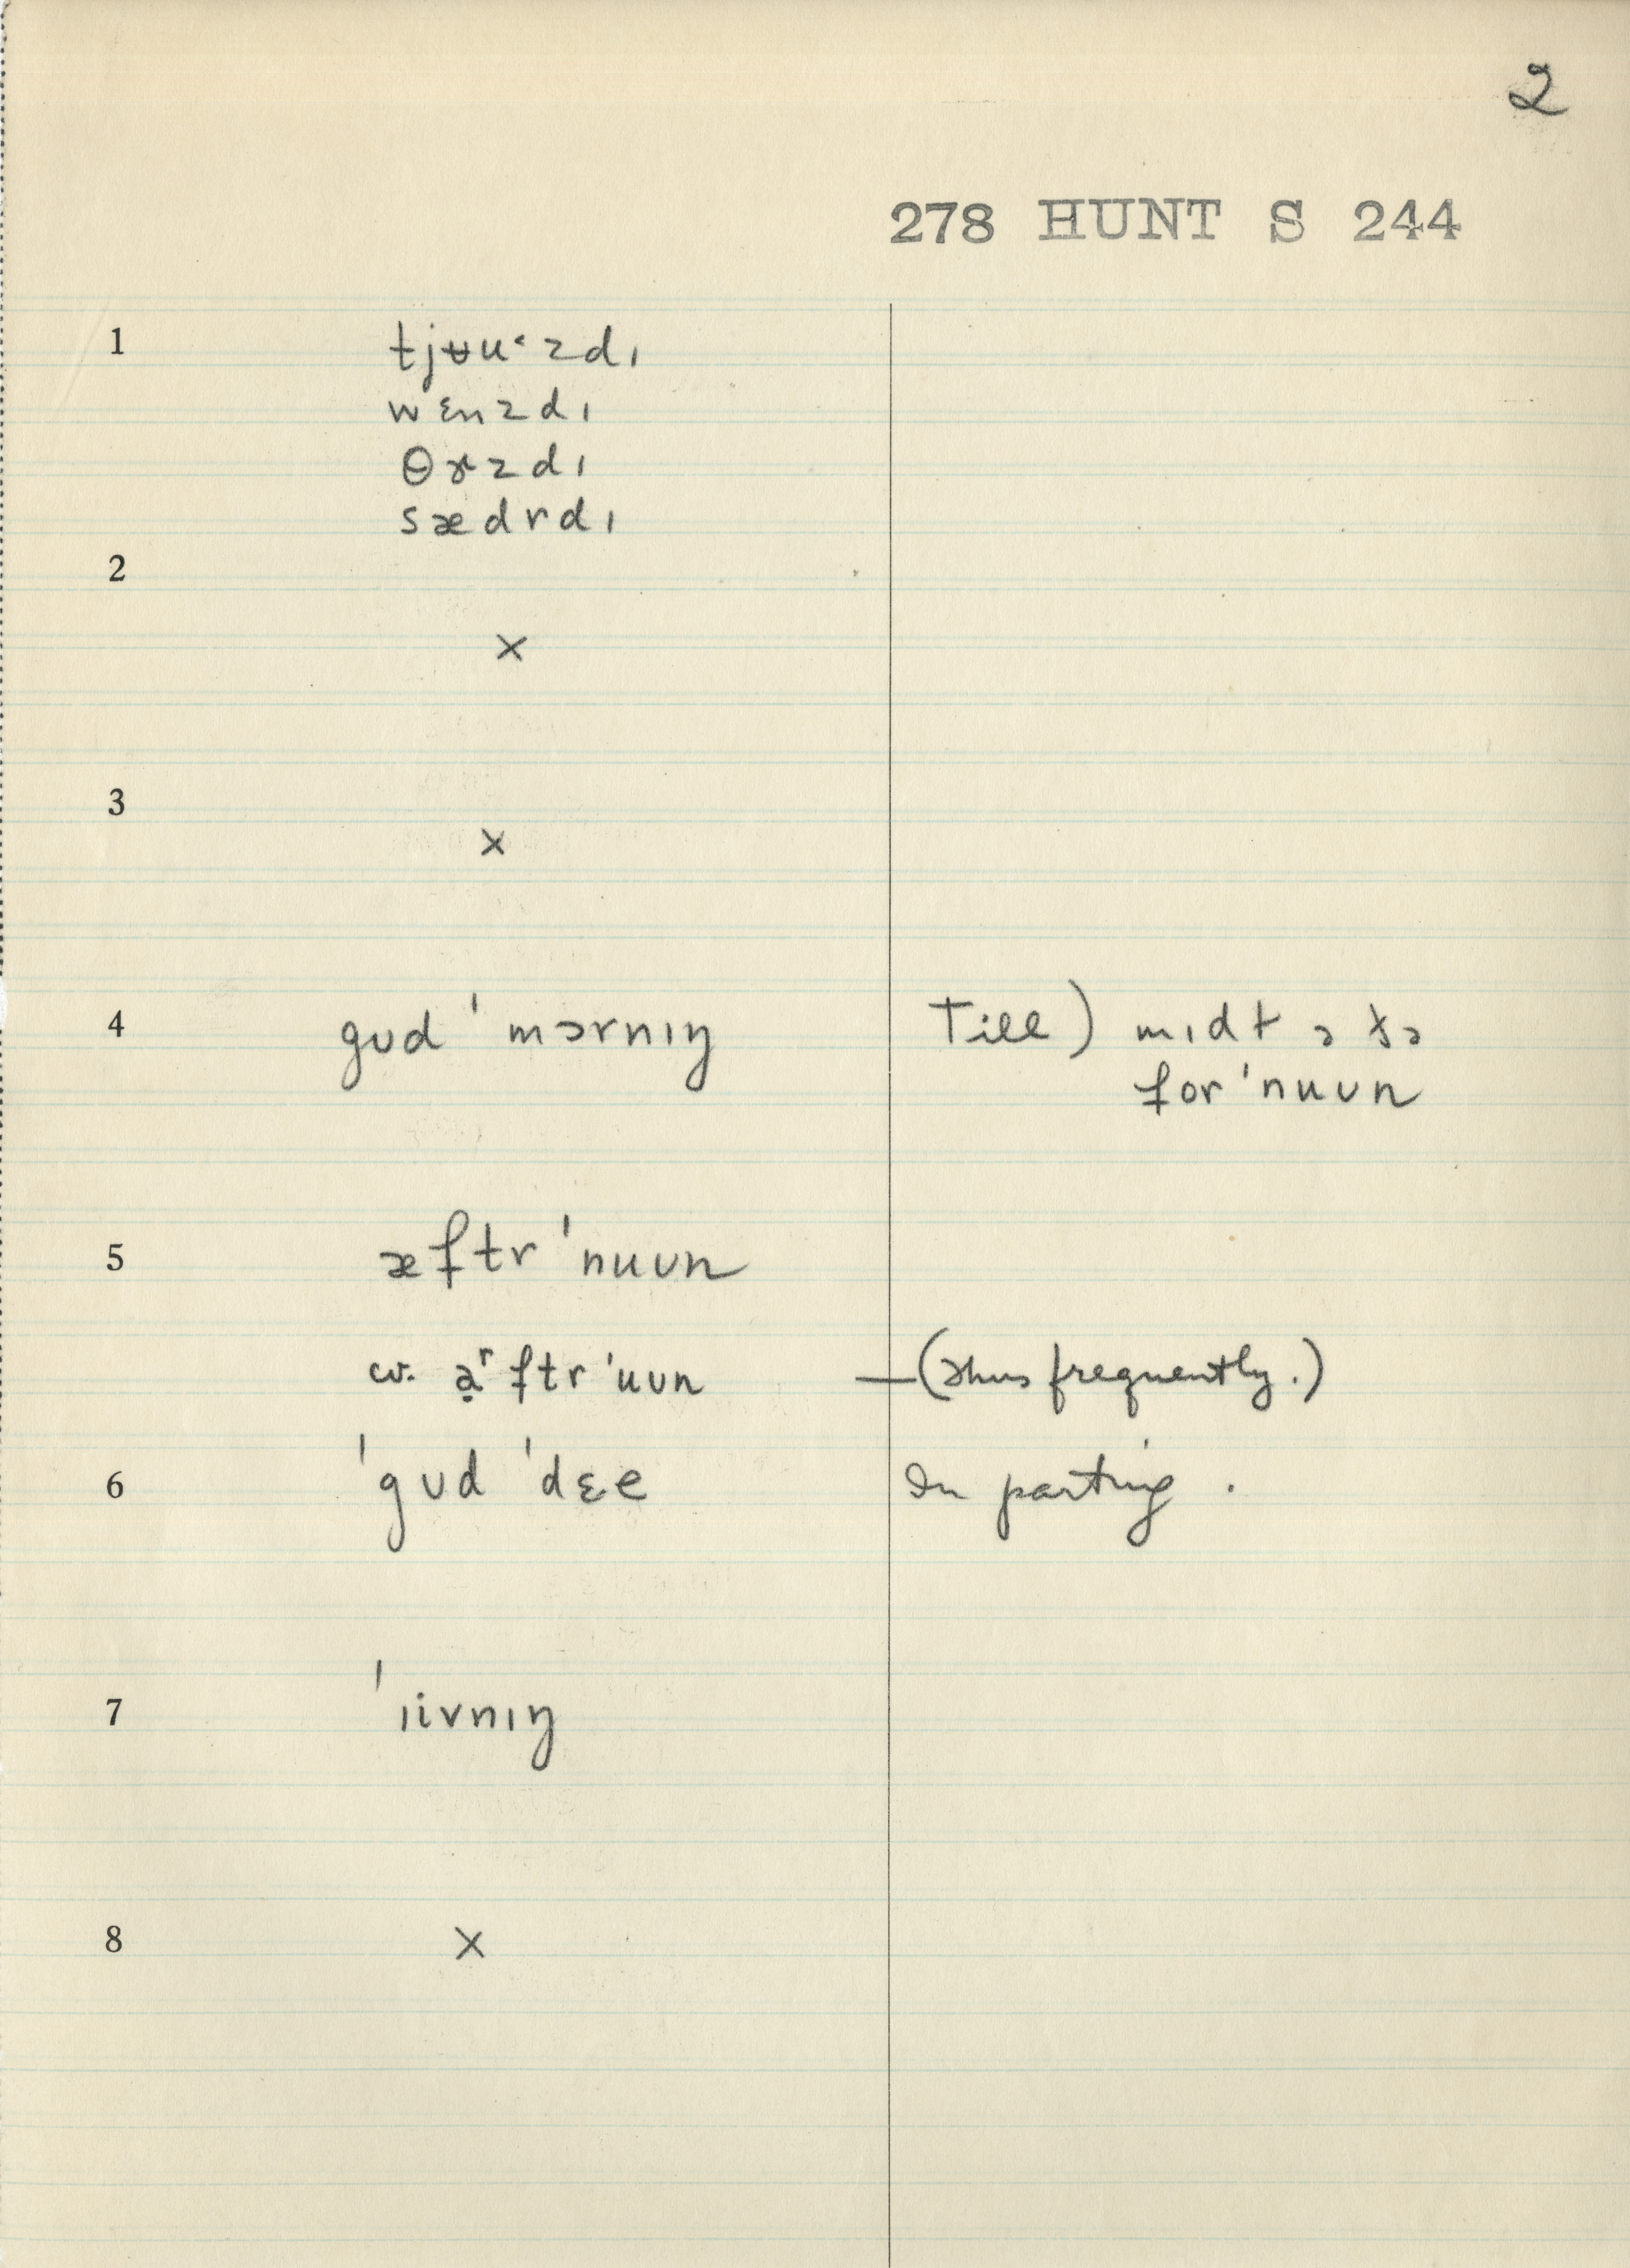 2
278 HUNT S 244
1 tjʉuˑzdɪ
wɛnzdɪ
θɝzdɪ
sædrdɪ
2
×
3
×
4 gʊd ˈmɔrnɪŋ Till)
forˈnuʊn
5 æftrˈnuʊn
cv. ftrˈnuʊn —(Thus frequently.)
6 ˈgʊd ˈdɛe In parting.
7 ˈɪivnɪŋ
8 ×